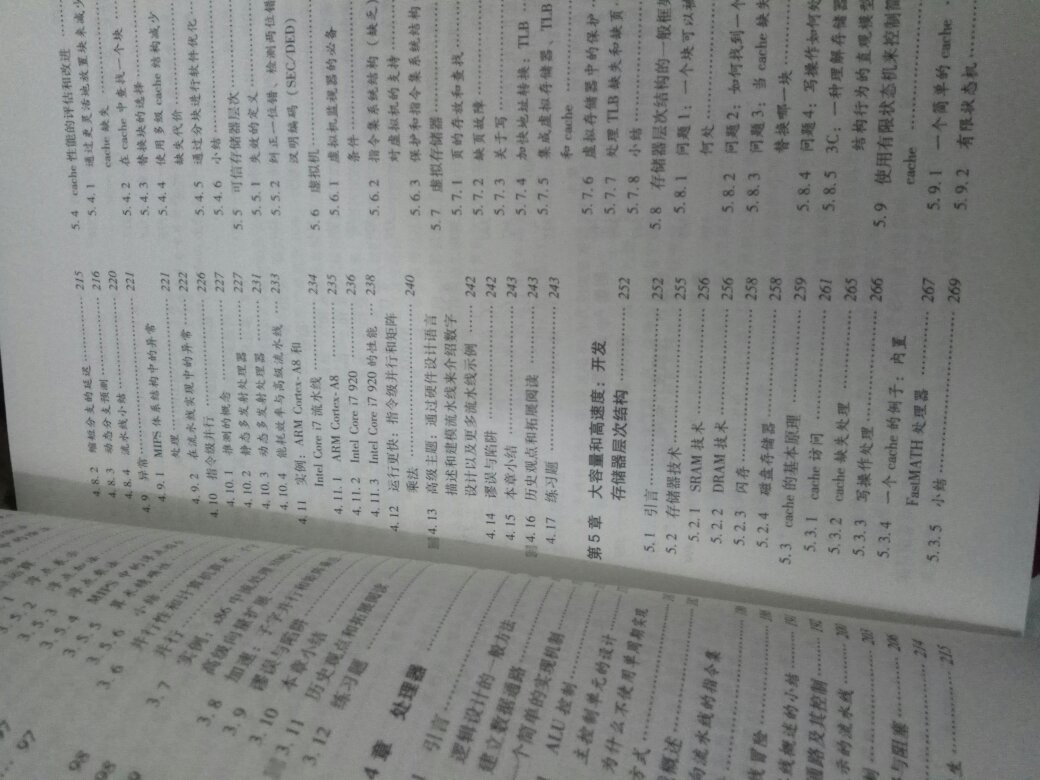 3.5.2
3.5.3
3.5.4
3.5.5 MIPS
3.5.6
3.6
3.7
3.8
3.9
3.10 谬误与陷阱
3.11 本章小结
3.12 历史观点和拓展阅读
练习题
4 章 处理器
引言
逻辑设计的一般方法
建立数据通路
一个简单的实现机制
ALU 控制
主控制单元的设计
为什么不使用单周期实现
方式
概述
向流水线的指令集
线冒险
线概述的小结
通路及其控制
示的流水线
与阻塞
4.8.2 缩短分支的延迟 215
4.8.3 动态分支预测 216
4.8.4 流水线小结 220
4.9 异常 221
4.9.1 MIPS 体系结构中的异常
处理 221
4.9.2 在流水线实现中的异常 222
4.10 指令级并行 226
4.10.1 推测的概念 227
4.10.2 静态多发射处理器 227
4.10.3 动态多发射处理器 231
4.10.4 能耗效率与高级流水线 233
4.11 实例：ARM Cortex-A8 和
Intel Core i7 流水线 234
4.11.1 ARM Cortex-A8 235
4.11.2 Intel Core i7 920 236
4.11.3 Intel Core i7 920 的性能 238
4.12 运行更快：指令级并行和矩阵
乘法 240
4.13 高级主题：通过硬件设计语言
描述和建模流水线来介绍数字
设计以及更多流水线示例 242
4.14 谬误与陷阱 242
4.15 本章小结 243
4.16 历史观点和拓展阅读 243
4.17 练习题 243
第5章 大容量和高速度：开发
存储器层次结构 252
5.1 引言 252
5.2 存储器技术 255
5.2.1 SRAM 技术 256
5.2.2 DRAM 技术 256
5.2.3 闪存 258
5.2.4 磁盘存储器 258
5.3 cache 的基本原理 259
5.3.1 cache 访问 261
5.3.2 cache 缺失处理 265
5.3.3 写操作处理 266
5.3.4 一个 cache 的例子：内置
FastMATH 处理器 267
5.3.5 小结 269
5.4 cache 性能的评估和改进
5.4.1 通过更灵活地放置块来减少
cache 缺失
5.4.2 在 cache 中查找一个块
5.4.3 替换块的选择
5.4.4 使用多级 cache 结构减少
缺失代价
5.4.5 通过分块进行软件优化
5.4.6 小结
5.5 可信存储器层次
5.5.1 失效的定义
5.5.2 纠正一位错、检测两位错
汉明编码（SEC/DED）
5.6 虚拟机
5.6.1 虚拟机监视器的必备
条件
5.6.2 指令集系统结构（缺乏）
对虚拟机的支持
5.6.3 保护和指令集系统结构
5.7 虚拟存储器
5.7.1 页的存放和查找
5.7.2 缺页故障
5.7.3 关于写
5.7.4 加快地址转换：TLB
5.7.5 集成虚拟存储器、TLB
和 cache
5.7.6 虚拟存储器中的保护
5.7.7 处理 TLB 缺失和缺页
5.7.8 小结
5.8 存储器层次结构的一般框架
5.8.1 问题1：一个块可以被
何处
5.8.2 问题2：如何找到一个
5.8.3 问题3：当 cache 缺失
替换哪一块
5.8.4 问题4：写操作如何处
5.8.5 3C：一种理解存储器
结构行为的直观模型
5.9 使用有限状态机来控制简
cache
5.9.1 一个简单的 cache
5.9.2 有限状态机